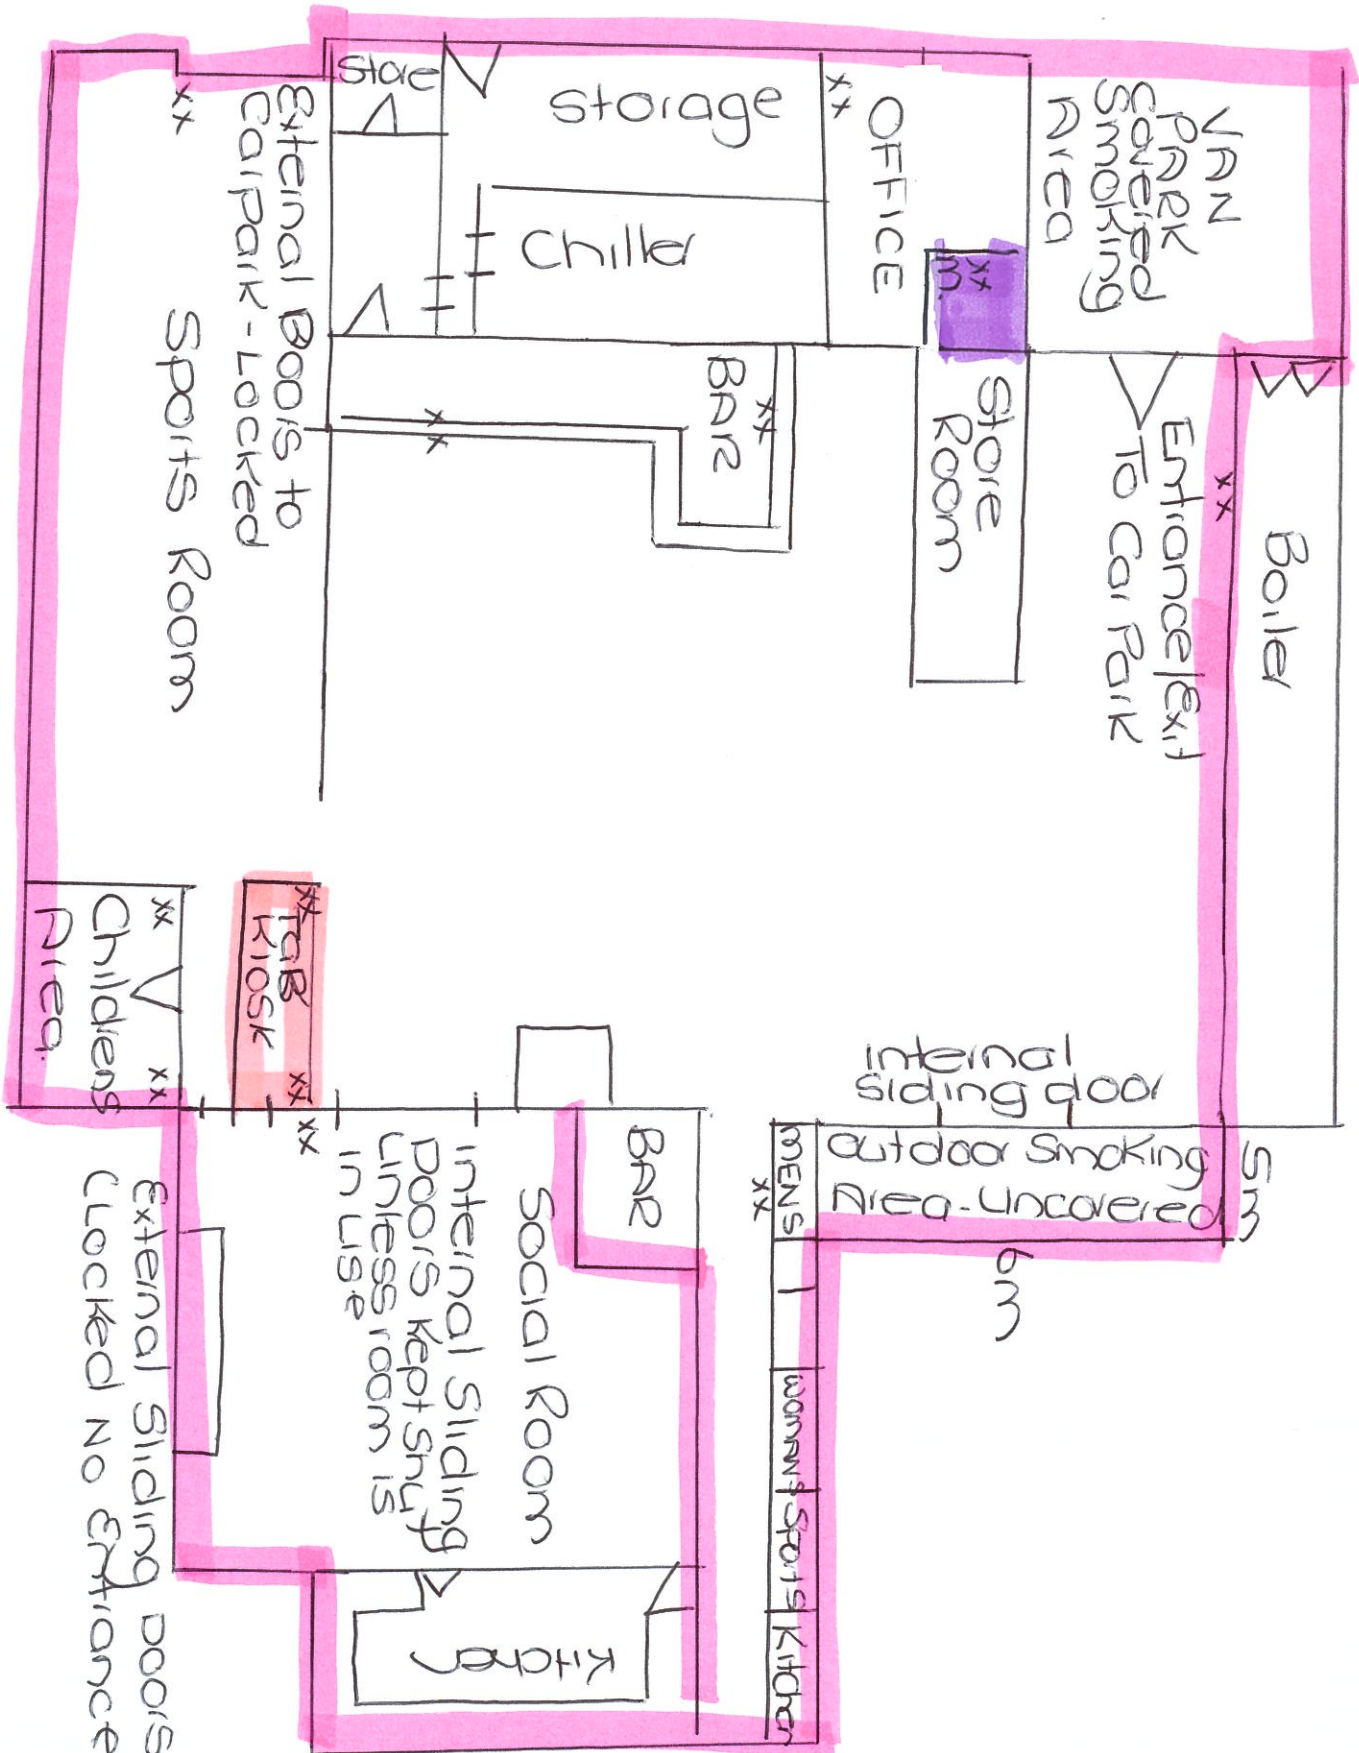 Store
Storage
Chiller
xx
OFFICE
xx
3.
VAN
PARK
Covered
Smoking
Area
xx
External Boors to
Carpark - Locked
Sports Room
BAR
xx
x
x
Store
Room
Entrance/Exit
To Car Park
xx
Boiler
xx
Childrens
Area.
xx
xx
TAB
KIOSK
xx
xx
internal
siding door
MENS
xx
Outdoor Smoking
Area - Uncovered
5m
6m
BAR
Social Room
internal Sliding
Doors Kept Shut
unless room is
in use
External Sliding Doors
CLocked No Entrance
womans
Sports
Kitchen
Kitchen